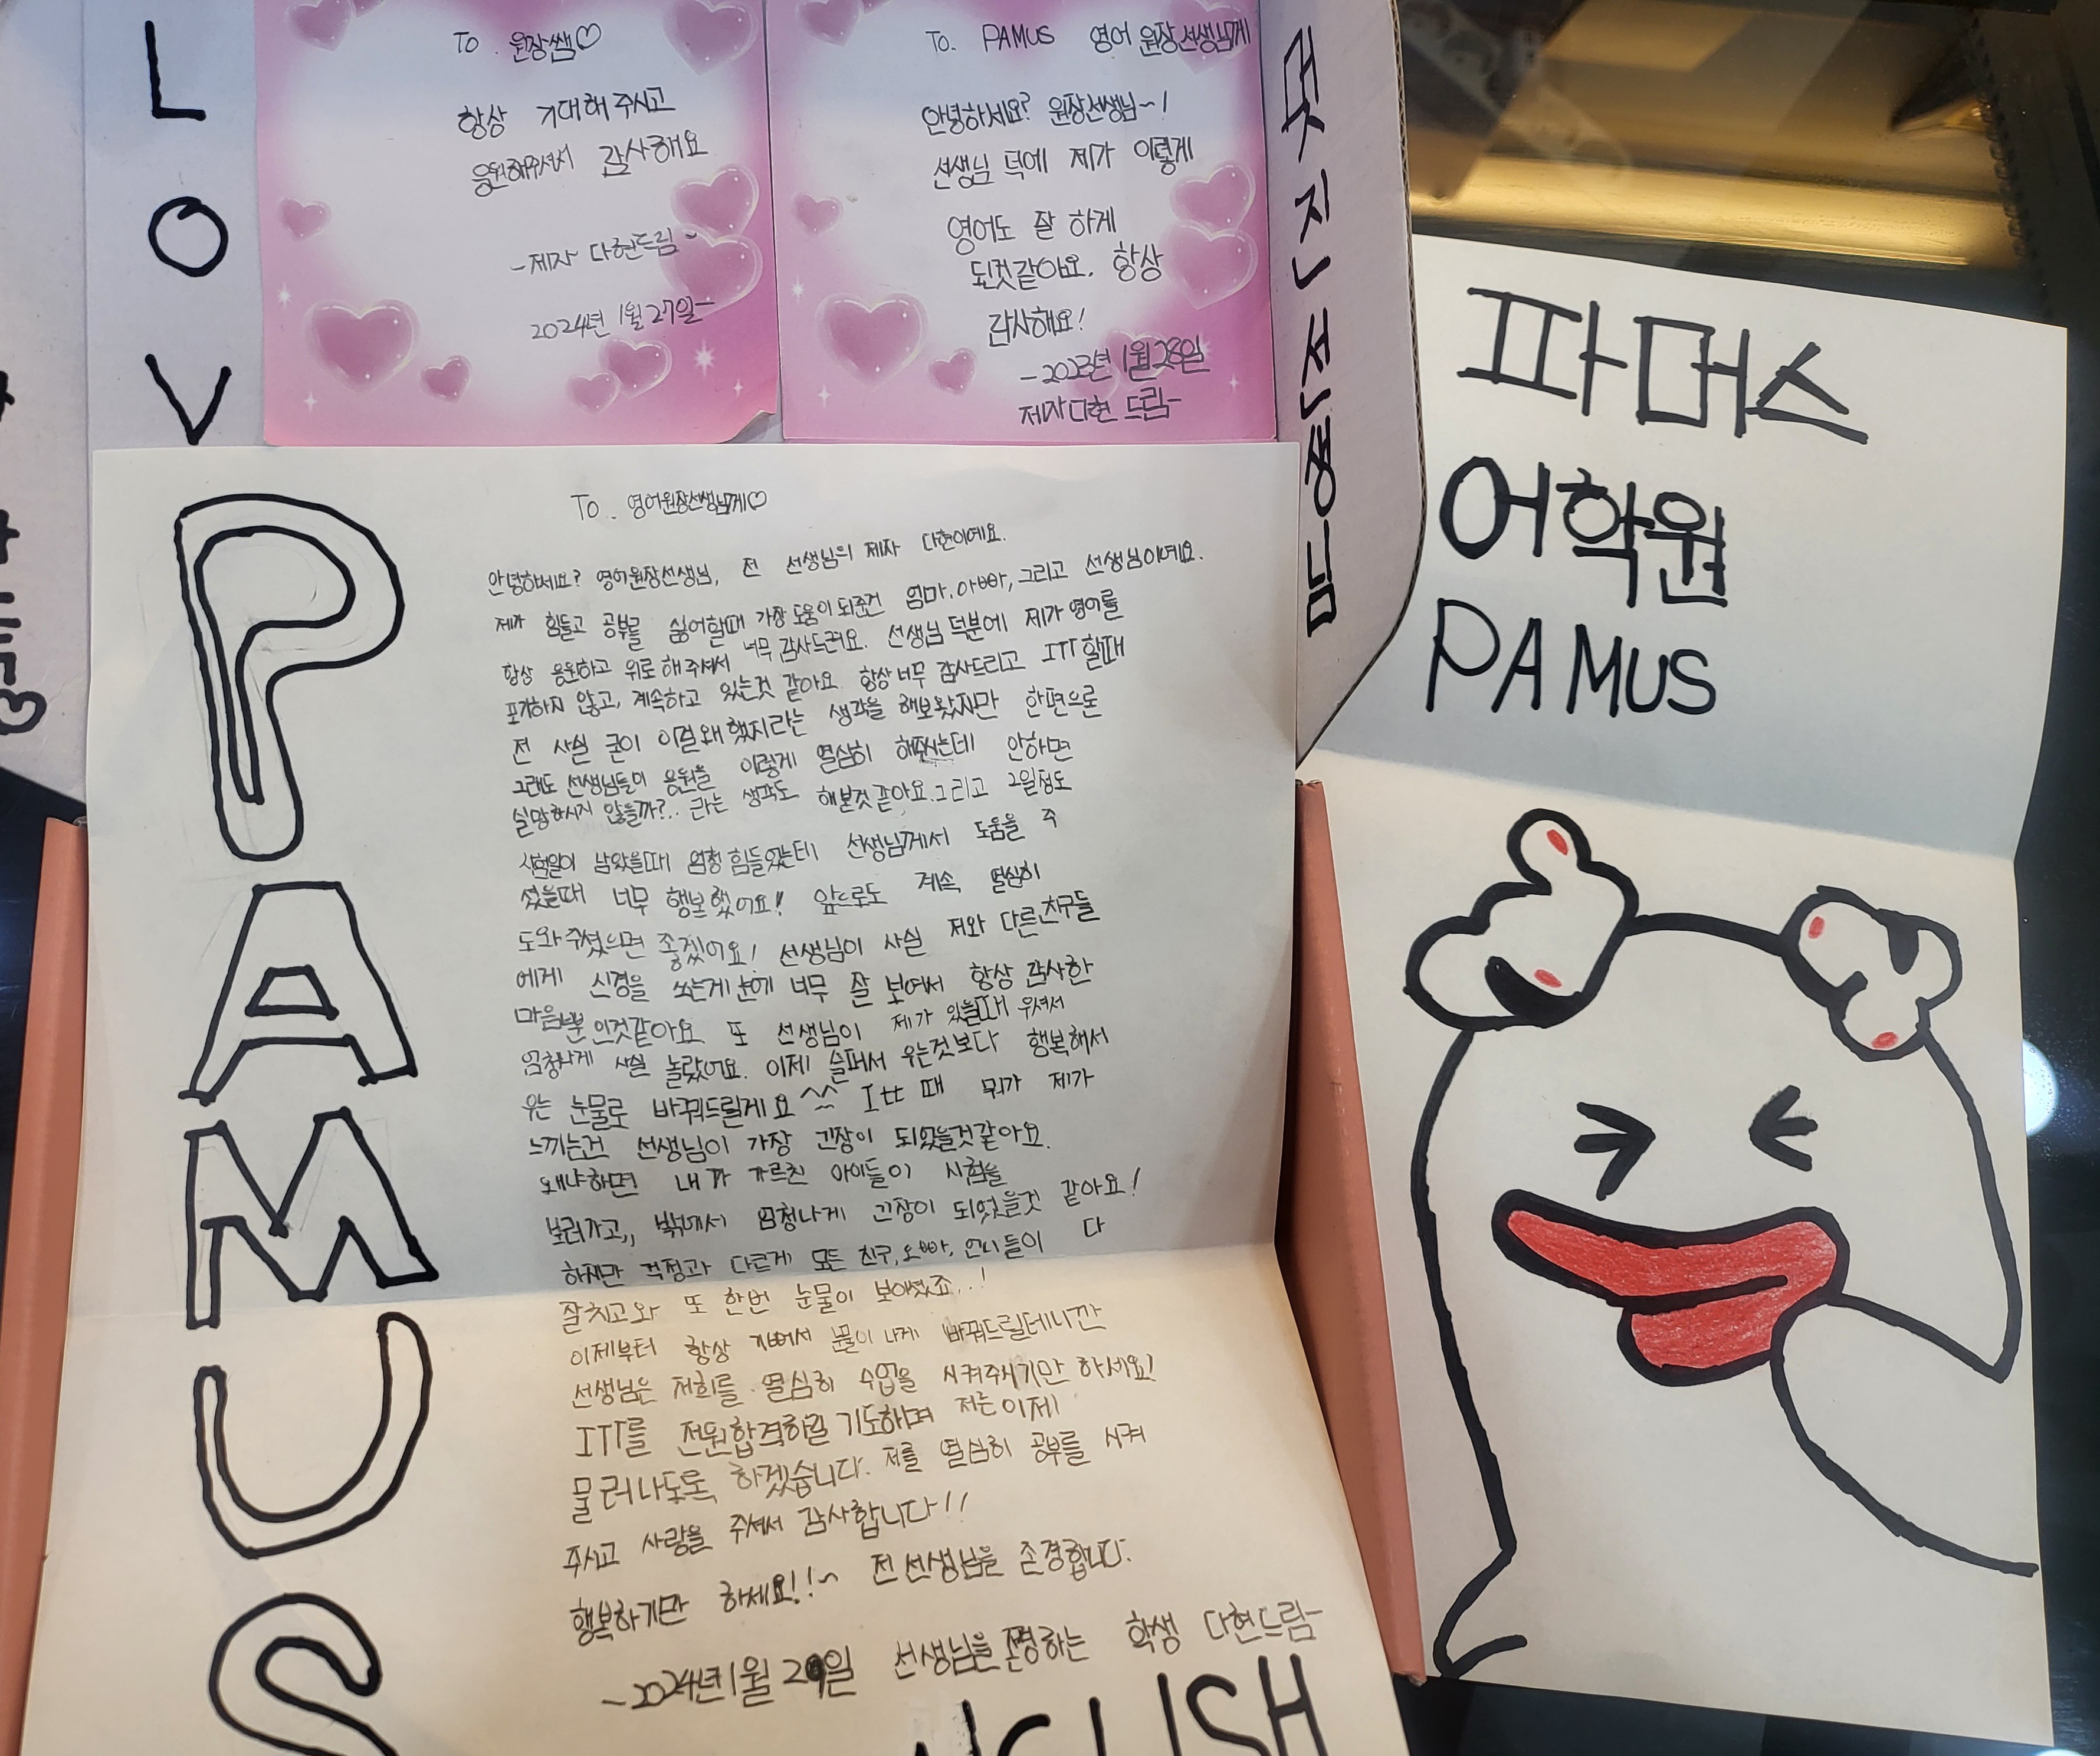 L
O
V
To. 원장쌤♡
항상 기대해 주시고
응원해주셔서 감사해요
-제자 다현드림~
2024년 1월 27일-
To. PAMUS 영어 원장선생님께
안녕하세요? 원장선생님~!
선생님 덕에 제가 이렇게
영어도 잘 하게
된것같아요. 항상
감사해요!
-2023년 1월 28일
제자다현 드림-
멋진선생님
파머스
어학원
PAMUS
PAMUS
To. 영어원장선생님께♡
안녕하세요? 영어원장선생님, 전 선생님의 제자 다현이에요.
제가 힘들고 공부를 싫어할때 가장 도움이 되준건 엄마, 아빠, 그리고 선생님이에요.
항상 응원하고 위로 해주셔서 너무 감사드려요. 선생님 덕분에 제가 영어를
포기하지 않고, 계속하고 있는것 같아요. 항상 너무 감사드리고 ITT 할때
전 사실 굳이 이걸 왜 했지라는 생각을 해보왔지만 한편으론
그래도 선생님들이 응원을 이렇게 열심히 해주시는데 안하면
실망하시지 않을까?.. 라는 생각도 해본것같아요. 그리고 2일정도
시험일이 남았을때 엄청 힘들었는데 선생님께서 도움을 주
셨을때 너무 행복했어요!! 앞으로도 계속 열심히
도와주셨으면 좋겠어요! 선생님이 사실 저와 다른친구들
에게 신경을 쓰는게 눈에 너무 잘 보여서 항상 감사한
마음뿐인것같아요. 또 선생님이 제가 있을때 우셔서
엄청나게 사실 놀랐어요. 이제 슬퍼서 우는것보다 행복해서
우는 눈물로 바꿔드릴게요^^ Itt 때 뭐가 제가
느끼는건 선생님이 가장 긴장이 되었을것같아요.
왜냐하면 내가 가르친 아이들이 시험을
보러가고,, 밖에서 엄청나게 긴장이 되었을것 같아요!
하지만 걱정과 다르게 모든 친구, 오빠, 언니들이 다
잘치고와 또 한번 눈물이 보이셨죠..!
이제부터 항상 기뻐서 눈물이 나게 바꿔드릴테니깐
선생님은 저희를 열심히 수업을 시켜주시기만 하세요!
ITT를 전원합격하길 기도하며 저는 이제
물러나도록 하겠습니다. 저를 열심히 공부를 시켜
주시고 사랑을 주셔서 감사합니다!!
행복하기만 하세요!!~ 전 선생님을 존경합니다.
-2024년 1월 29일 선생님을 존경하는 학생 다현드림-